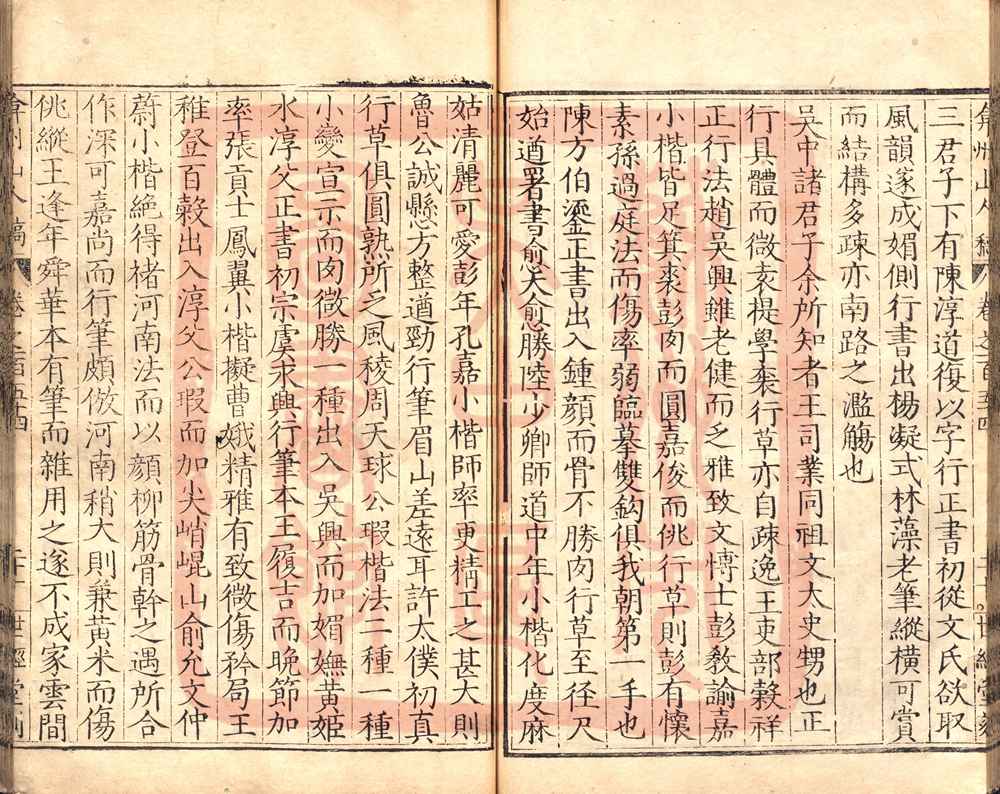 三君子下有陳淳道復以字行正書初從文氏欲取
風韻遂成媚側行書出楊凝式林藻老筆縱橫可賞
而結構多疎亦南路之濫觴也
吳中諸君子余所知者王司業同祖文太史甥也正
行具體而微袁提學褧行草亦自疎逸王吏部穀祥
正行法趙吳興雖老健而乏雅致文博士彭敎諭嘉
小楷皆足箕裘彭肉而圓嘉俊而佻行草則彭有懷
素孫過庭法而傷率弱臨摹雙鈎俱我朝第一手也
陳方伯鎏正書出入鍾顏而骨不勝肉行草至徑尺
始遒署書愈大愈勝陸少卿師道中年小楷化度麻
姑清麗可愛彭年孔嘉小楷師率更精工之甚大則
魯公誠懸方整遒勁行筆眉山差遠耳許太僕初真
行草俱圓熟所乏風稜周天球公瑕楷法二種一種
小變宣示而肉微勝一種出入吳興而加媚嫵黃姬
水淳父正書初宗虞永興行筆本王履吉而晚節加
率張貢士鳳翼小楷擬曹娥精雅有致微傷矜局王
稚登百穀出入淳父公瑕而加尖峭崐山俞允文仲
蔚小楷絕得楮河南法而以顏柳筋骨幹之遇所合
作深可嘉尚而行筆頗倣河南稍大則兼黃米而傷
佻縱王逢年舜華本有筆而雜用之遂不成家雲間
弇州山人稿 卷之一百五十四 二十一 世經堂刻